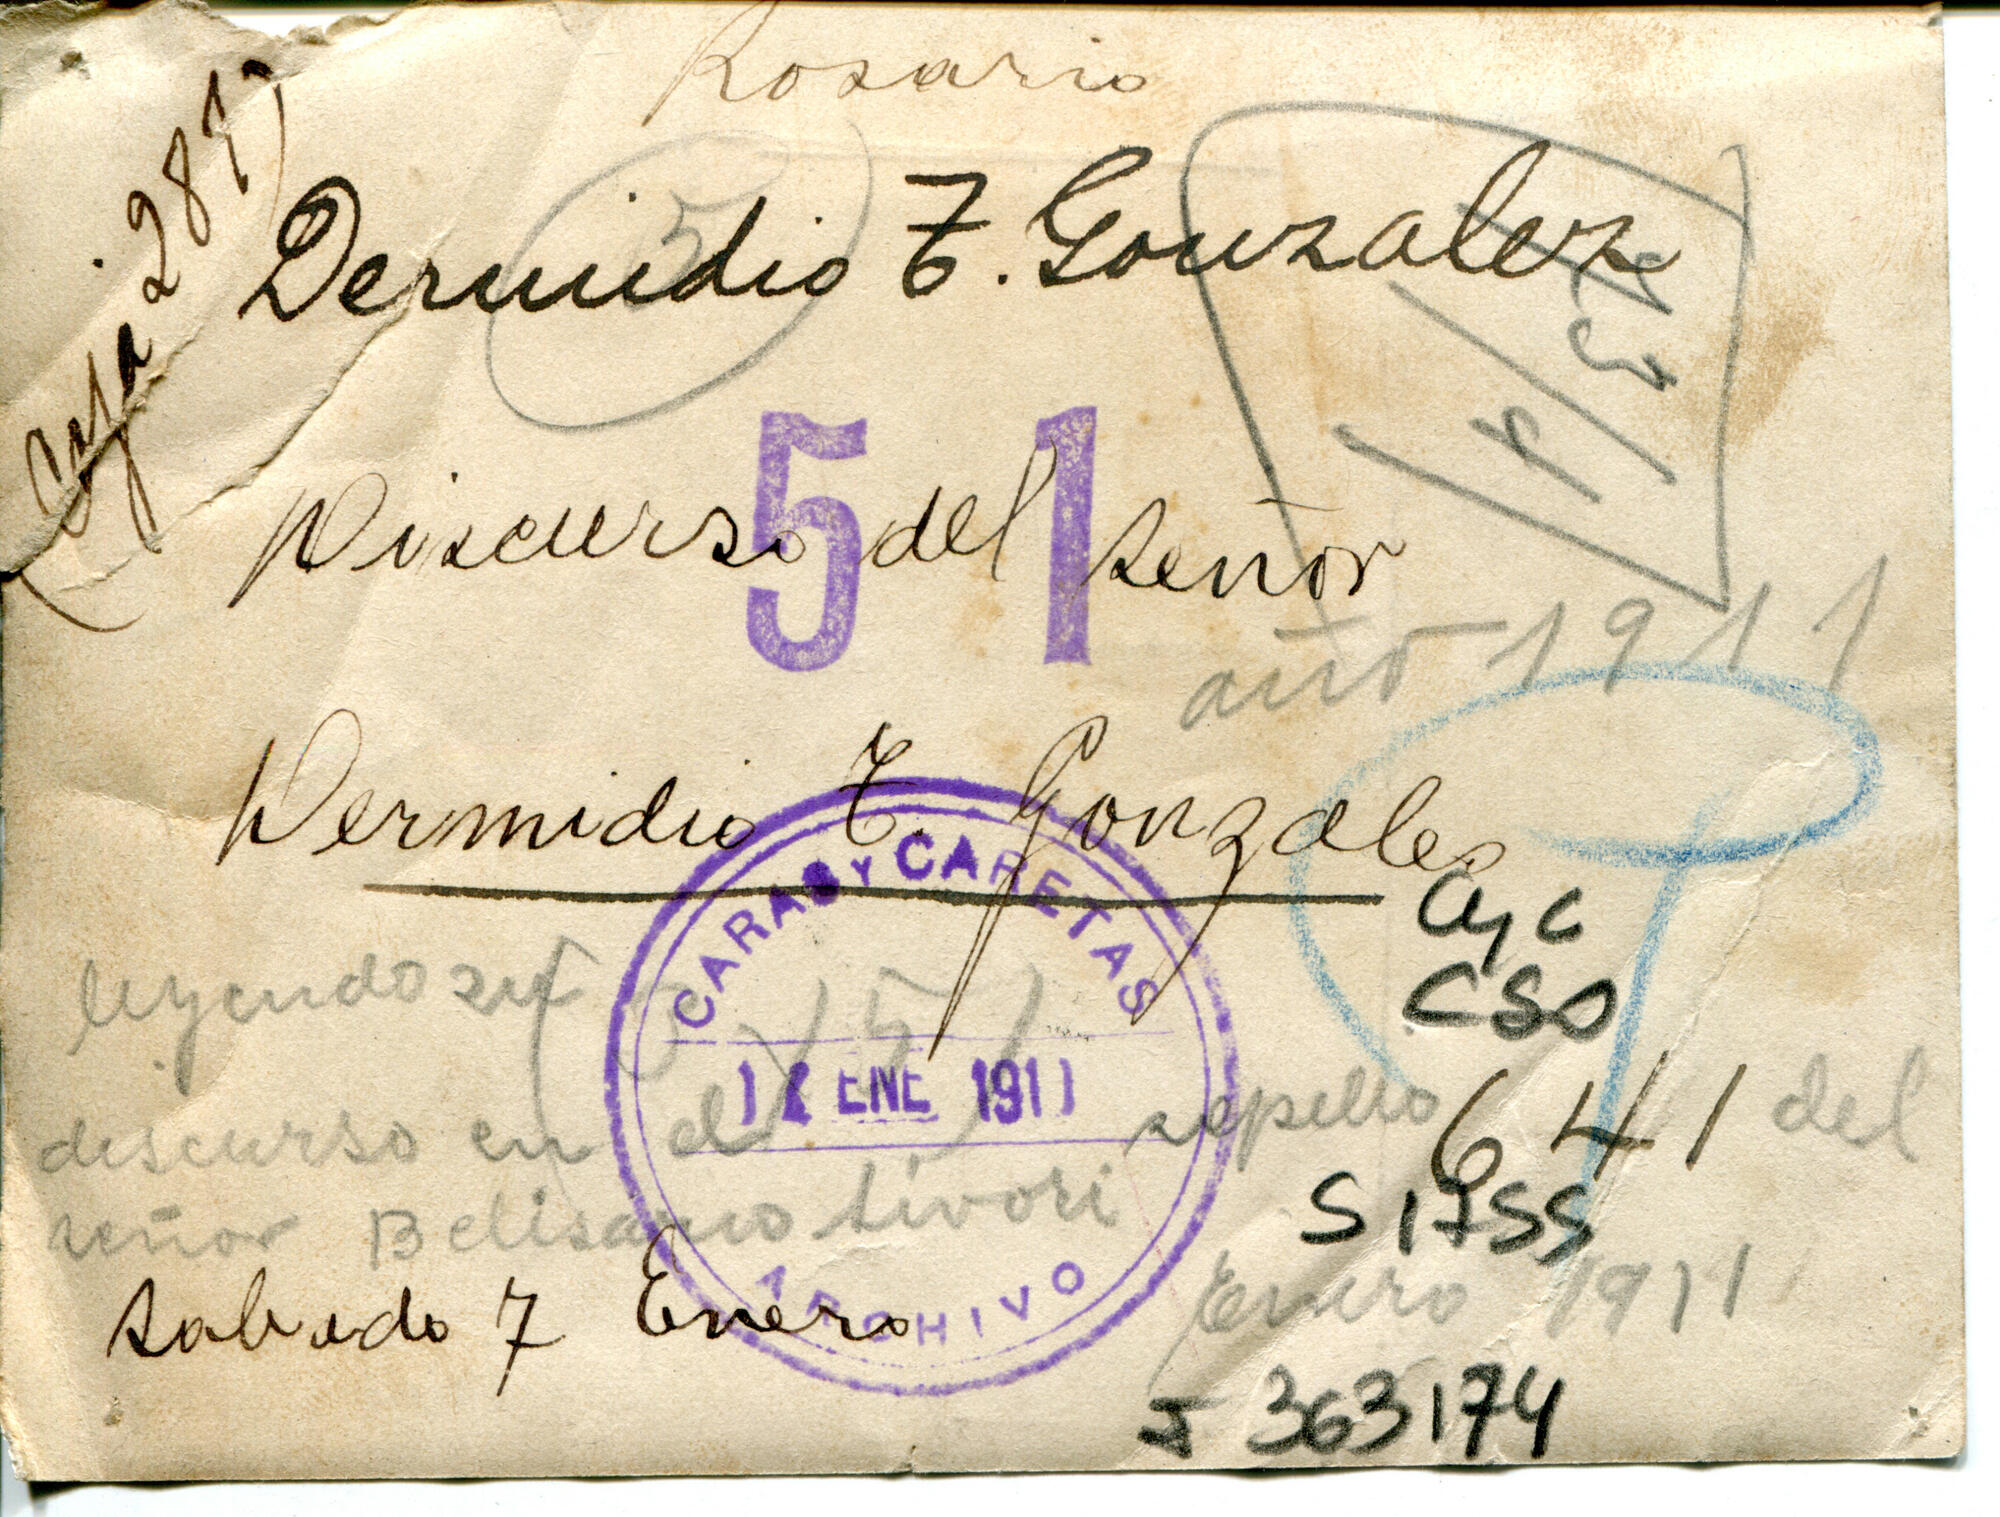 Rosario
Caja 2877
5
Dermidio T. Gonzalez
51
Discurso del señor
año 1911
Dermidio T. Gonzales
CARAS Y CARETAS
CyC
CSO
leyendo su
12 ENE 1911
discurso en el sepelio del
641
señor Belisario Sivori
S1755
ARCHIVO
sabado 7 Enero
Enero 1911
J 363174